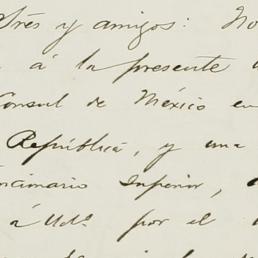 Sres y amigos: No
á la presente
Consul de México en
República, y una
ncionario Superior,
á Uds. por el